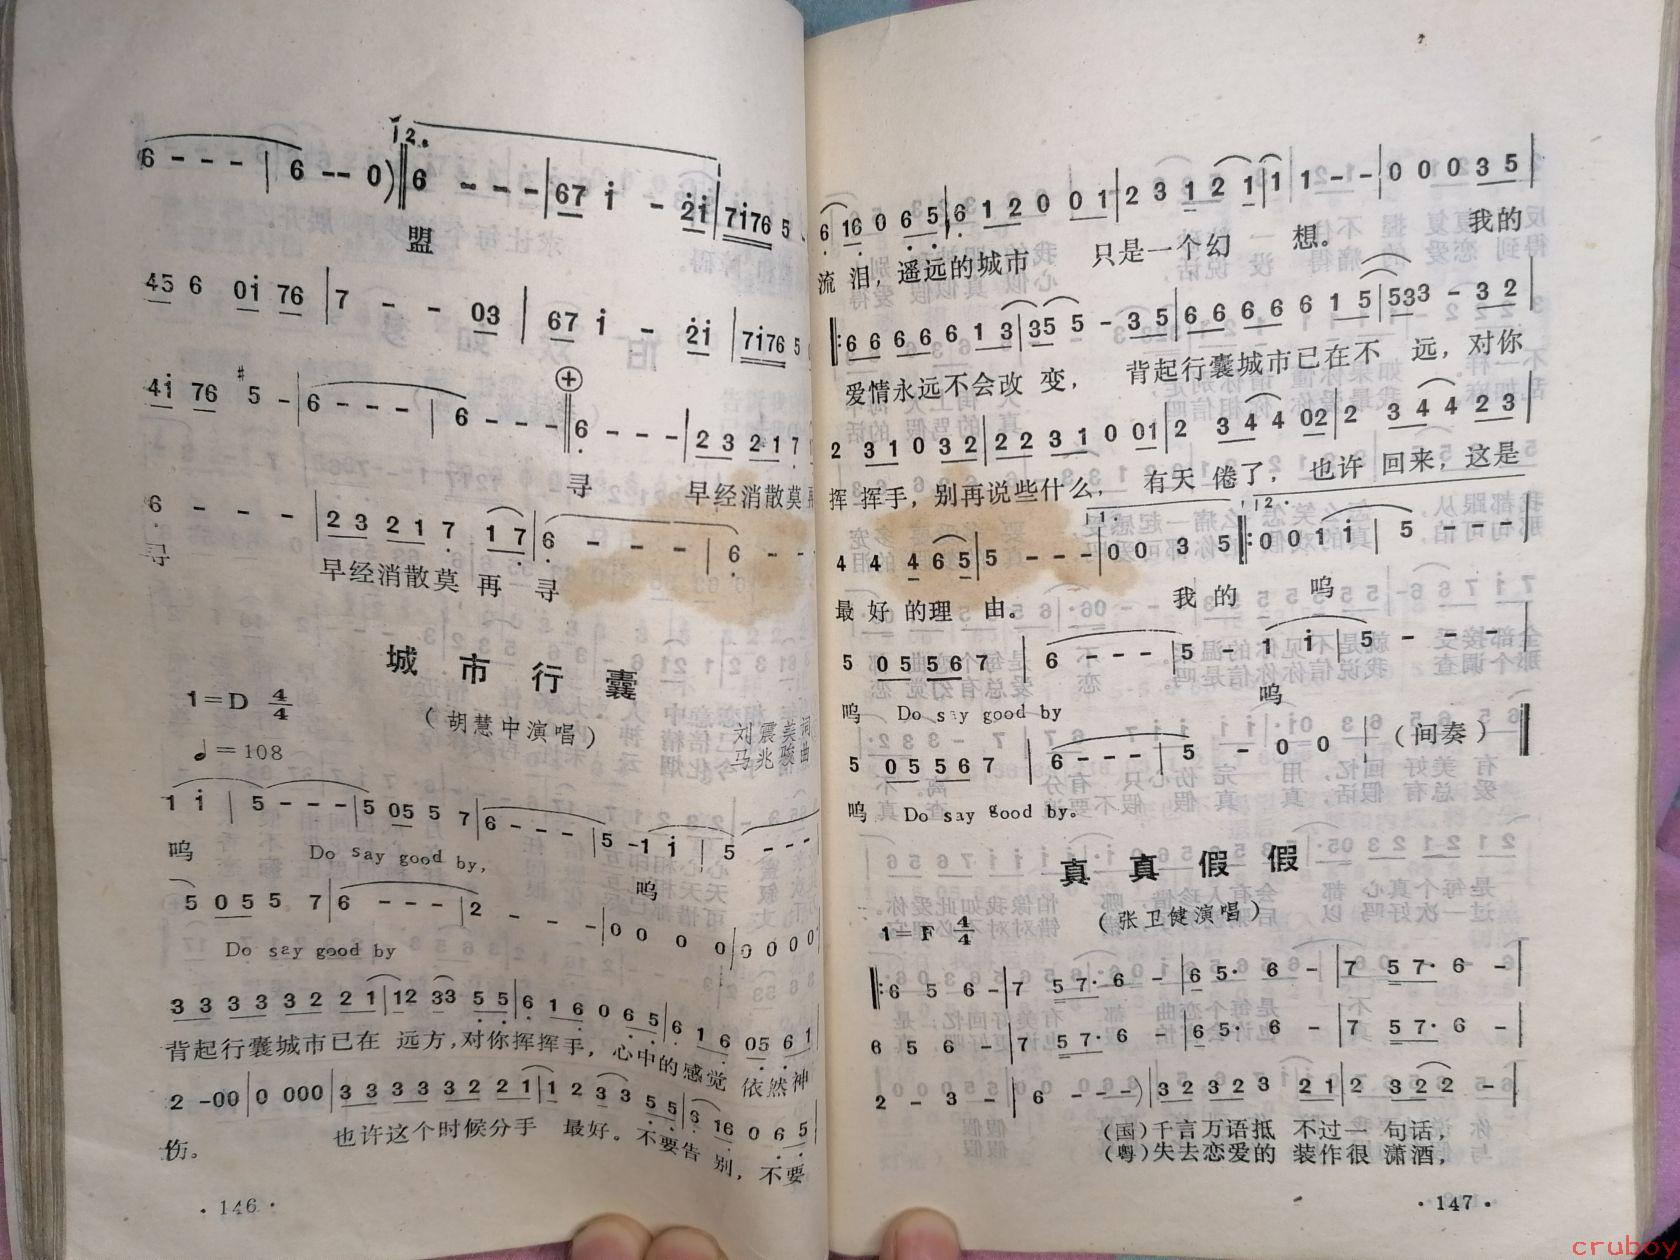 12.
6 - - - | 6 - - 0) | 6 - - - | 67 i - 2i | 7i76 5
盟
45 6 0i 76 | 7 - - 03 | 67 i - 2i | 7i76 5
4i 76 #5 - | 6 - - - | 6 - - | 6 - - - | 2 3 2 1 7
寻 早经消散莫
6 - - - | 2 3 2 1 7 1 7 | 6 - - - | 6 - -
寻 早经消散莫 再 寻
城市行囊
1=D 4/4
(胡慧中演唱)
刘震美词
♩=108
马兆骏曲
1 i | 5 - - - | 5 05 5 7 | 6 - - - | 5 - 1 i | 5 - - -
呜 Do say good by, 呜
5 05 5 7 | 6 - - - | 2 - - - | 0 0 0 0 | 0 0 0 0
Do say good by
3 3 3 3 3 2 2 1 | 12 33 5 5 | 6 1 6 0 6 5 | 6 1 6 05 6 1
背起行囊城市已在 远方,对你挥挥手, 心中的感觉 依然神
2 - 0 0 | 0 000 | 3 3 3 3 3 2 2 1 | 1 2 3 3 5 5 | 6 16 0 6 5
伤。 也许这个时候分手 最好。不要告 别, 不要
·146·
6 16 0 6 5 | 6 1 2 0 0 0 1 | 2 3 1 2 1 | 1 1 - - | 0 0 0 3 5
流 泪, 遥远的城市 只是一个幻 想。 我的
6 6 6 6 6 1 3 | 35 5 - 3 5 | 6 6 6 6 6 1 5 | 533 - 3 2
爱情永远不会改 变, 背起行囊城市已在不 远, 对你
2 3 1 0 3 2 | 2 2 3 1 0 01 | 2 3 4 4 02 | 2 3 4 4 2 3
挥 挥手, 别再说些什么, 有天 倦了, 也许 回来, 这是
1. 2.
4 4 4 6 5 | 5 - - - | 0 0 3 5 :| 0 0 1 i | 5 - - -
最 好 的 理 由。 我 的 呜
5 05 56 7 | 6 - - - | 5 - 1 i | 5 - - -
呜 Do say good by 呜
5 05 56 7 | 6 - - - | 5 - 0 0 | (间奏)
呜 Do say good by。
真真假假
(张卫健演唱)
1=F 4/4
6 5 6 - | 7 57· 6 - | 6 5· 6 - | 7 57· 6 -
6 5 6 - | 7 57· 6 - | 6 5· 6 - | 7 57· 6 -
2 - 3 - | 6 - - -) | 3 2 3 2 3 2 1 | 2 3 2 2 -
(国)千言万语抵 不过一 句话,
(粤)失去恋爱的 装作很 潇洒,
·147·
cruboy